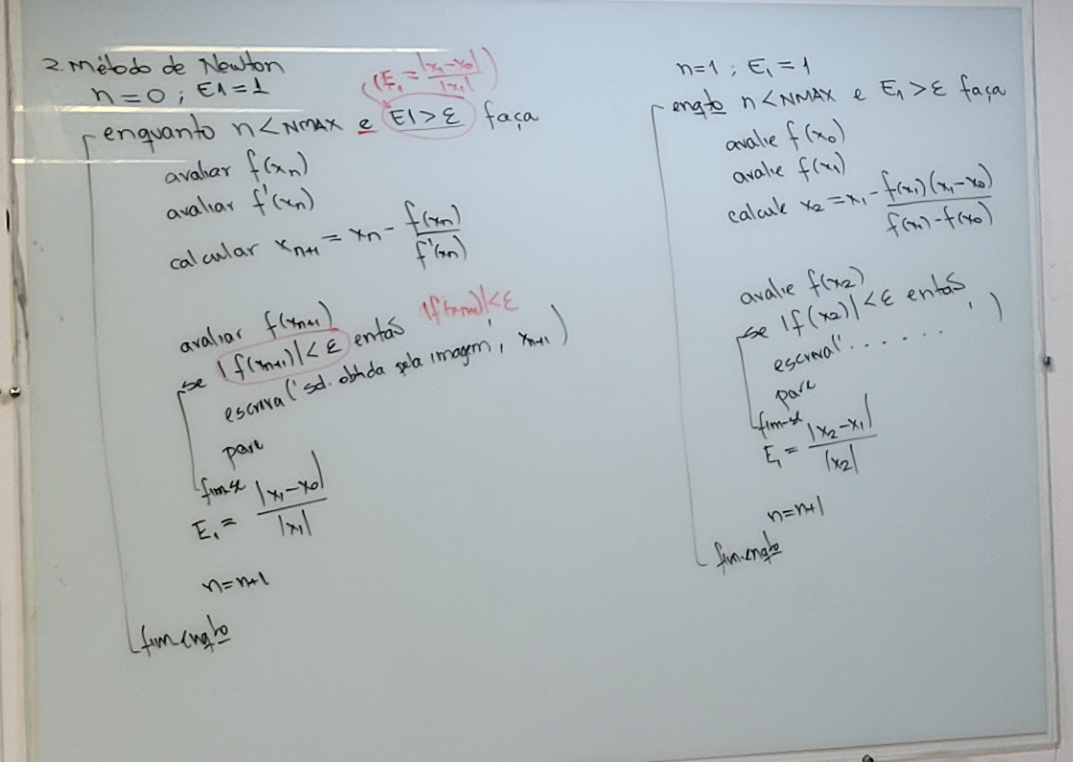 2. Método de Newton
n=0 ; E1=1
(E₁ = |x₁-x₀| / |x₁|)
enquanto n<NMAX e E1>ε faça
avaliar f(xn)
avaliar f'(xn)
calcular xn+1 = xn - f(xn) / f'(xn)
avaliar f(xn+1)
|f(xn+1)|<ε
se |f(xn+1)|<ε então
escreva('sol. obtida pela imagem', xn+1)
pare
fim-se
E₁ = |x₁-x₀| / |x₁|
n=n+1
fim-enqto
n=1 ; E₁=1
enqto n<NMAX e E₁>ε faça
avalie f(x₀)
avalie f(x₁)
calcule x₂=x₁- f(x₁)(x₁-x₀) / f(x₁)-f(x₀)
avalie f(x₂)
se |f(x₂)|<ε então
escreva('. . . . . . ', )
pare
fim-se
E₁ = |x₂-x₁| / |x₂|
n=n+1
fim-enqto